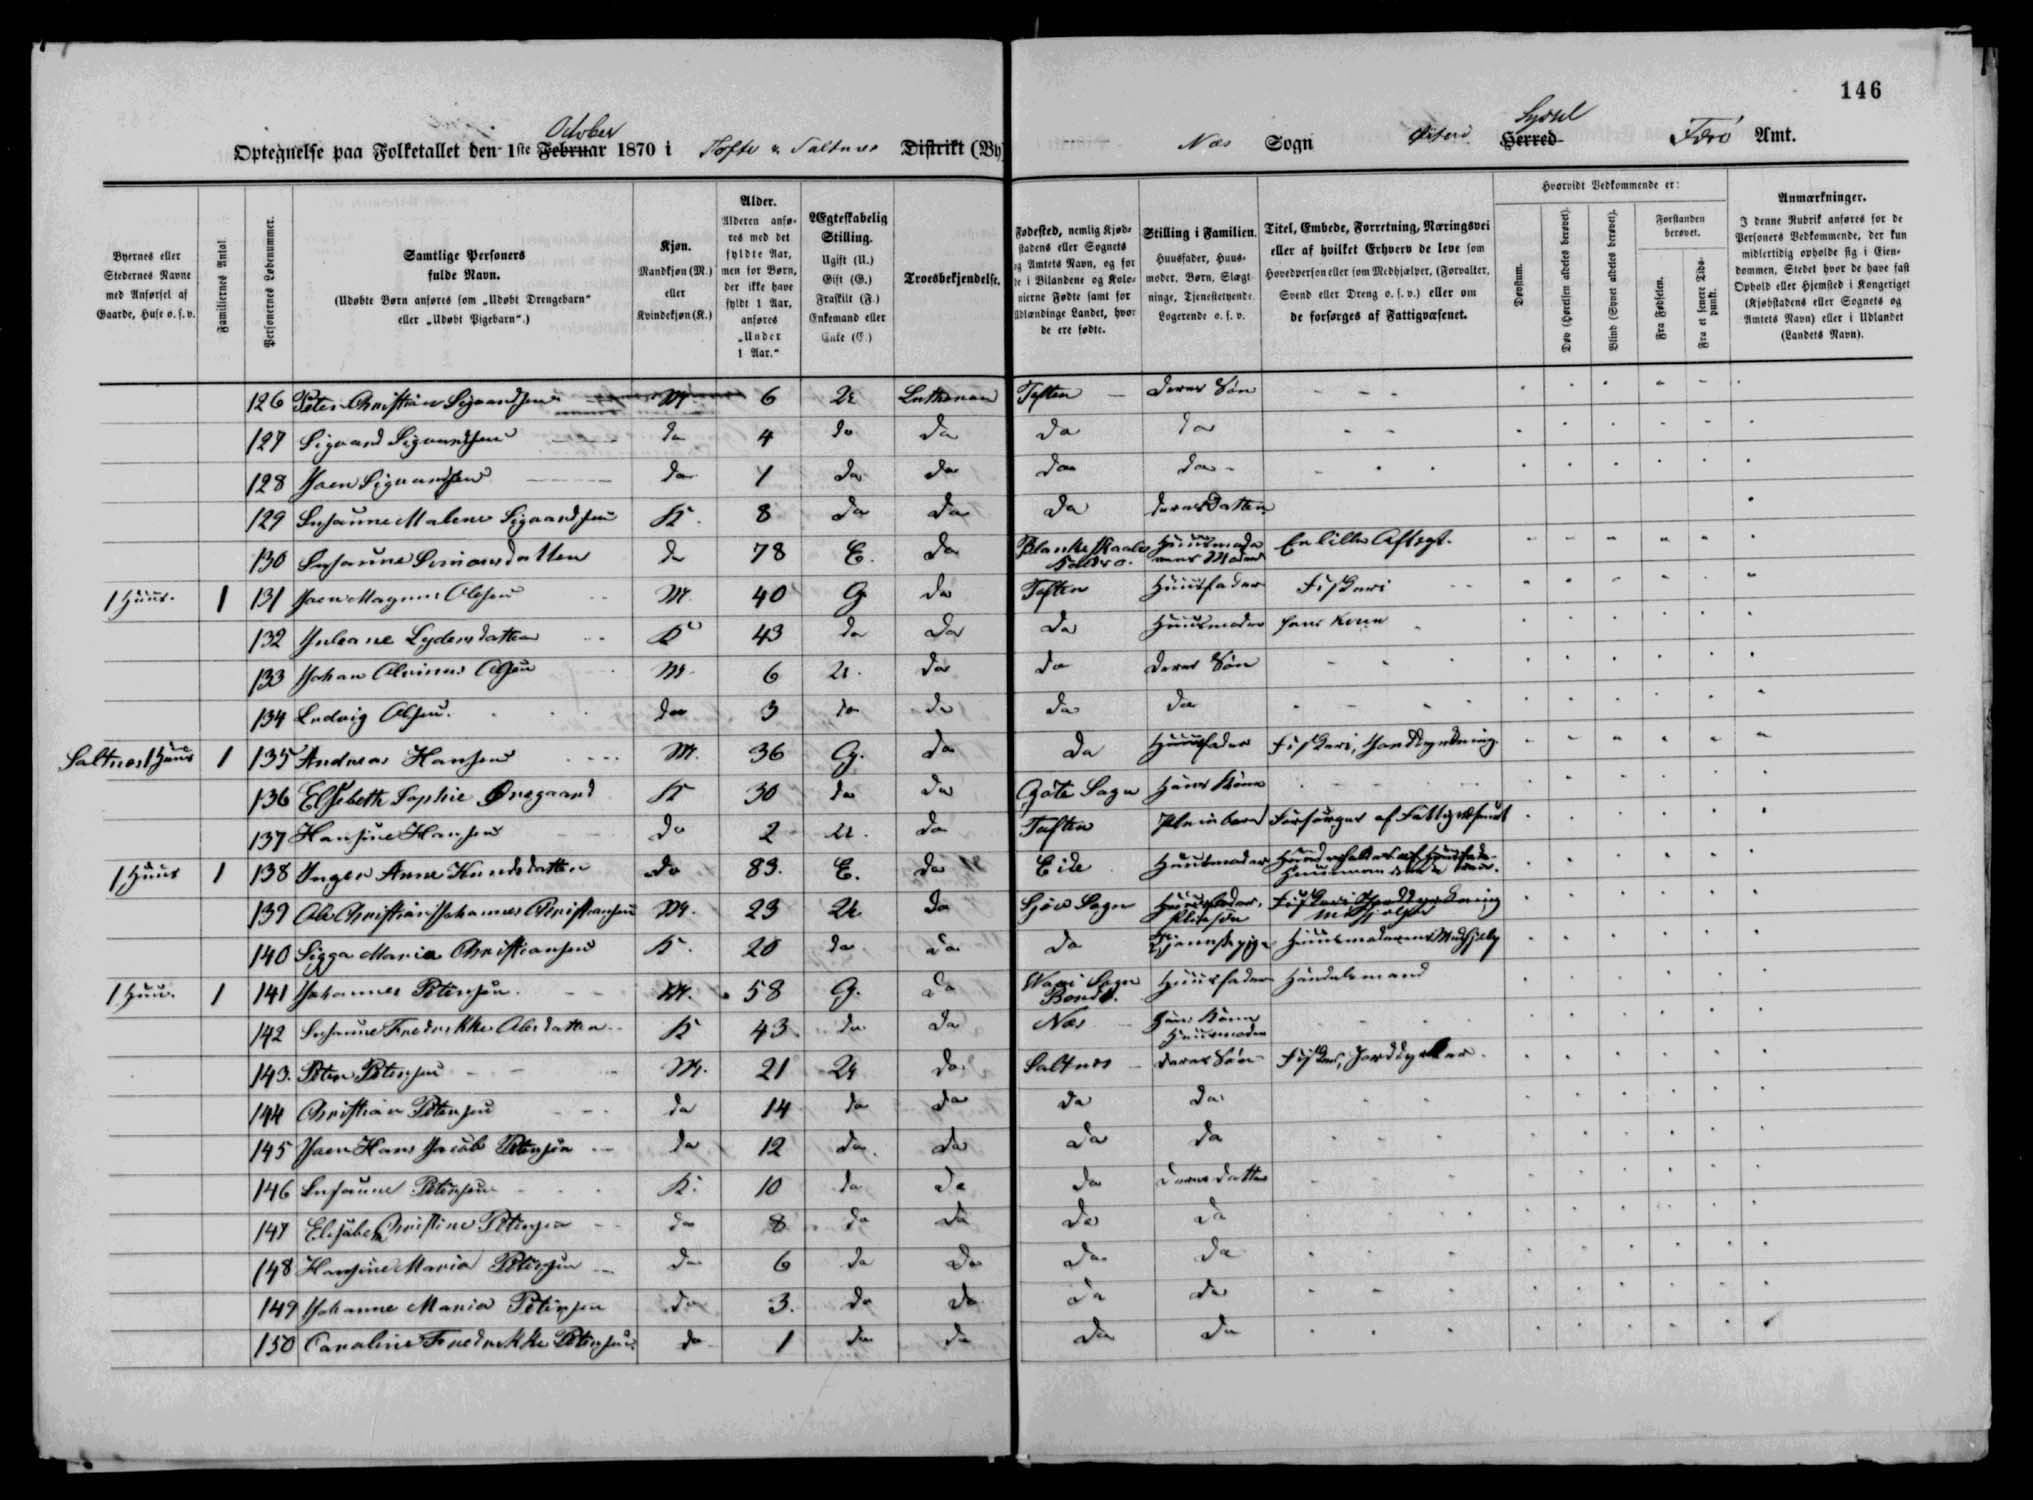 146
October
Syssel
Optegnelse paa Folketallet den 1ste Februar 1870 i Tofte & Saltnes Distrikt (By) Næs Sogn Østerø Herred Færø Amt.
Byernes eller Stedernes Navne med Anførsel af Gaarde, Huse o. s. v.
Familiernes Antal
Personernes Løbenummer.
Samtlige Personers fulde Navn.
(Udøbte Børn anføres som „Udøbt Drengebarn“ eller „Udøbt Pigebarn“.)
Kjøn.
Mandkjøn (M.) eller Kvindekjøn (K.)
Alder.
Alderen anføres med det fyldte Aar, men for Børn, der ikke have fyldt 1 Aar, anføres „Under 1 Aar.“
Ægteskabelig Stilling.
Ugift (U.) Gift (G.) Fraskilt (F.) Enkemand eller Enke (E.)
Troesbekjendelse.
Fødested, nemlig Kjødstadens eller Sognets og Amtets Navn, og for de i Bilandene og Kolonierne Fødte samt for Udlændinge Landet, hvor de ere fødte.
Stilling i Familien.
Huusfader, Huusmoder, Børn, Slægtninge, Tjenestetyende, Logerende o. s. v.
Titel, Embede, Forretning, Næringsvei eller af hvilket Erhverv de leve som Hovedperson eller som Medhjælper, (Forvalter, Svend eller Dreng o. s. v.) eller om de forsørges af Fattigvæsenet.
Hvorvidt Vedkommende er:
Døvstum.
Døv (Hørelsen aldeles berøvet).
Blind (Synet aldeles berøvet).
Forstanden berøvet.
Fra Fødselen.
Fra et senere Tidspunkt.
Anmærkninger.
I denne Rubrik anføres for de Personers Vedkommende, der kun midlertidig opholde sig i Eiendommen, Stedet hvor de have fast Ophold eller Hjemsted i Kongeriget (Kjøbstadens eller Sognets og Amtets Navn) eller i Udlandet (Landets Navn).
126 Peter Christian Sigvardsen M. 6 U. Lutheran Toften deres Søn
127 Sigvard Sigvardsen do 4 do do do do
128 Joen Sigvardsen do 1 do do do do
129 Susanne Malene Sigvardsen K. 8 do do do deres Datter
130 Susanne Simonsdatter do 78 E. do Huusmoderens Moder En lille Aftægt.
1 Huus. 1 131 Joen Magnus Olsen M. 40 G. do Toften Huusfader Fiskeri
132 Juliane Lydersdatter K. 43 do do do Huusmoder hans Kone
133 Johan Olsen M. 6 U. do do deres Søn
134 Ludvig Olsen. do 3 do do do do
Saltnes 1 Huus 1 135 Andreas Hansen M. 36 G. do do Huusfader Fiskeri, Jorddyrkning.
136 Elsebeth Sophie K 30 do do Gøte Sogn Hans Kone
137 Hansine Hansen do 2 U. do Toften Pleiebarn Forsørges af Fattigvæsenet
1 Huus 1 138 Inger Anne do 83. E. do Eide Huusmoder
139 Ole Christian Johannes Christiansen M. 23 U. do Sjov Sogn Huusfader, Pleiesøn Fiskeri Jorddyrkning
140 Sigga Maria Christiansen K. 20 do do do Tjenestepige Huusmoderens Medhjelp
1 Huus. 1 141 Johannes Petersen. M. 58 G. do Sogn Huusfader Handelsmand
142 Susanne Fredrikke Olesdatter K 43 do do Næs Hans Kone Huusmoder
143. Peter Petersen M. 21 U do Saltnes deres Søn Fisker, Jorddyrker.
144 Christian Petersen do 14 do do do do
145 Joen Hans Jacob Petersen do 12 do. do do do
146 Susanne Petersen K. 10 do do do deres Datter
147 Christine Petersen do 8 do do do do
148 Hansine Maria Petersen do 6 do do do do
149 Johanne Maria Petersen do 3. do do do do
150 Caroline Fredrikke Petersen. do 1 do do do do